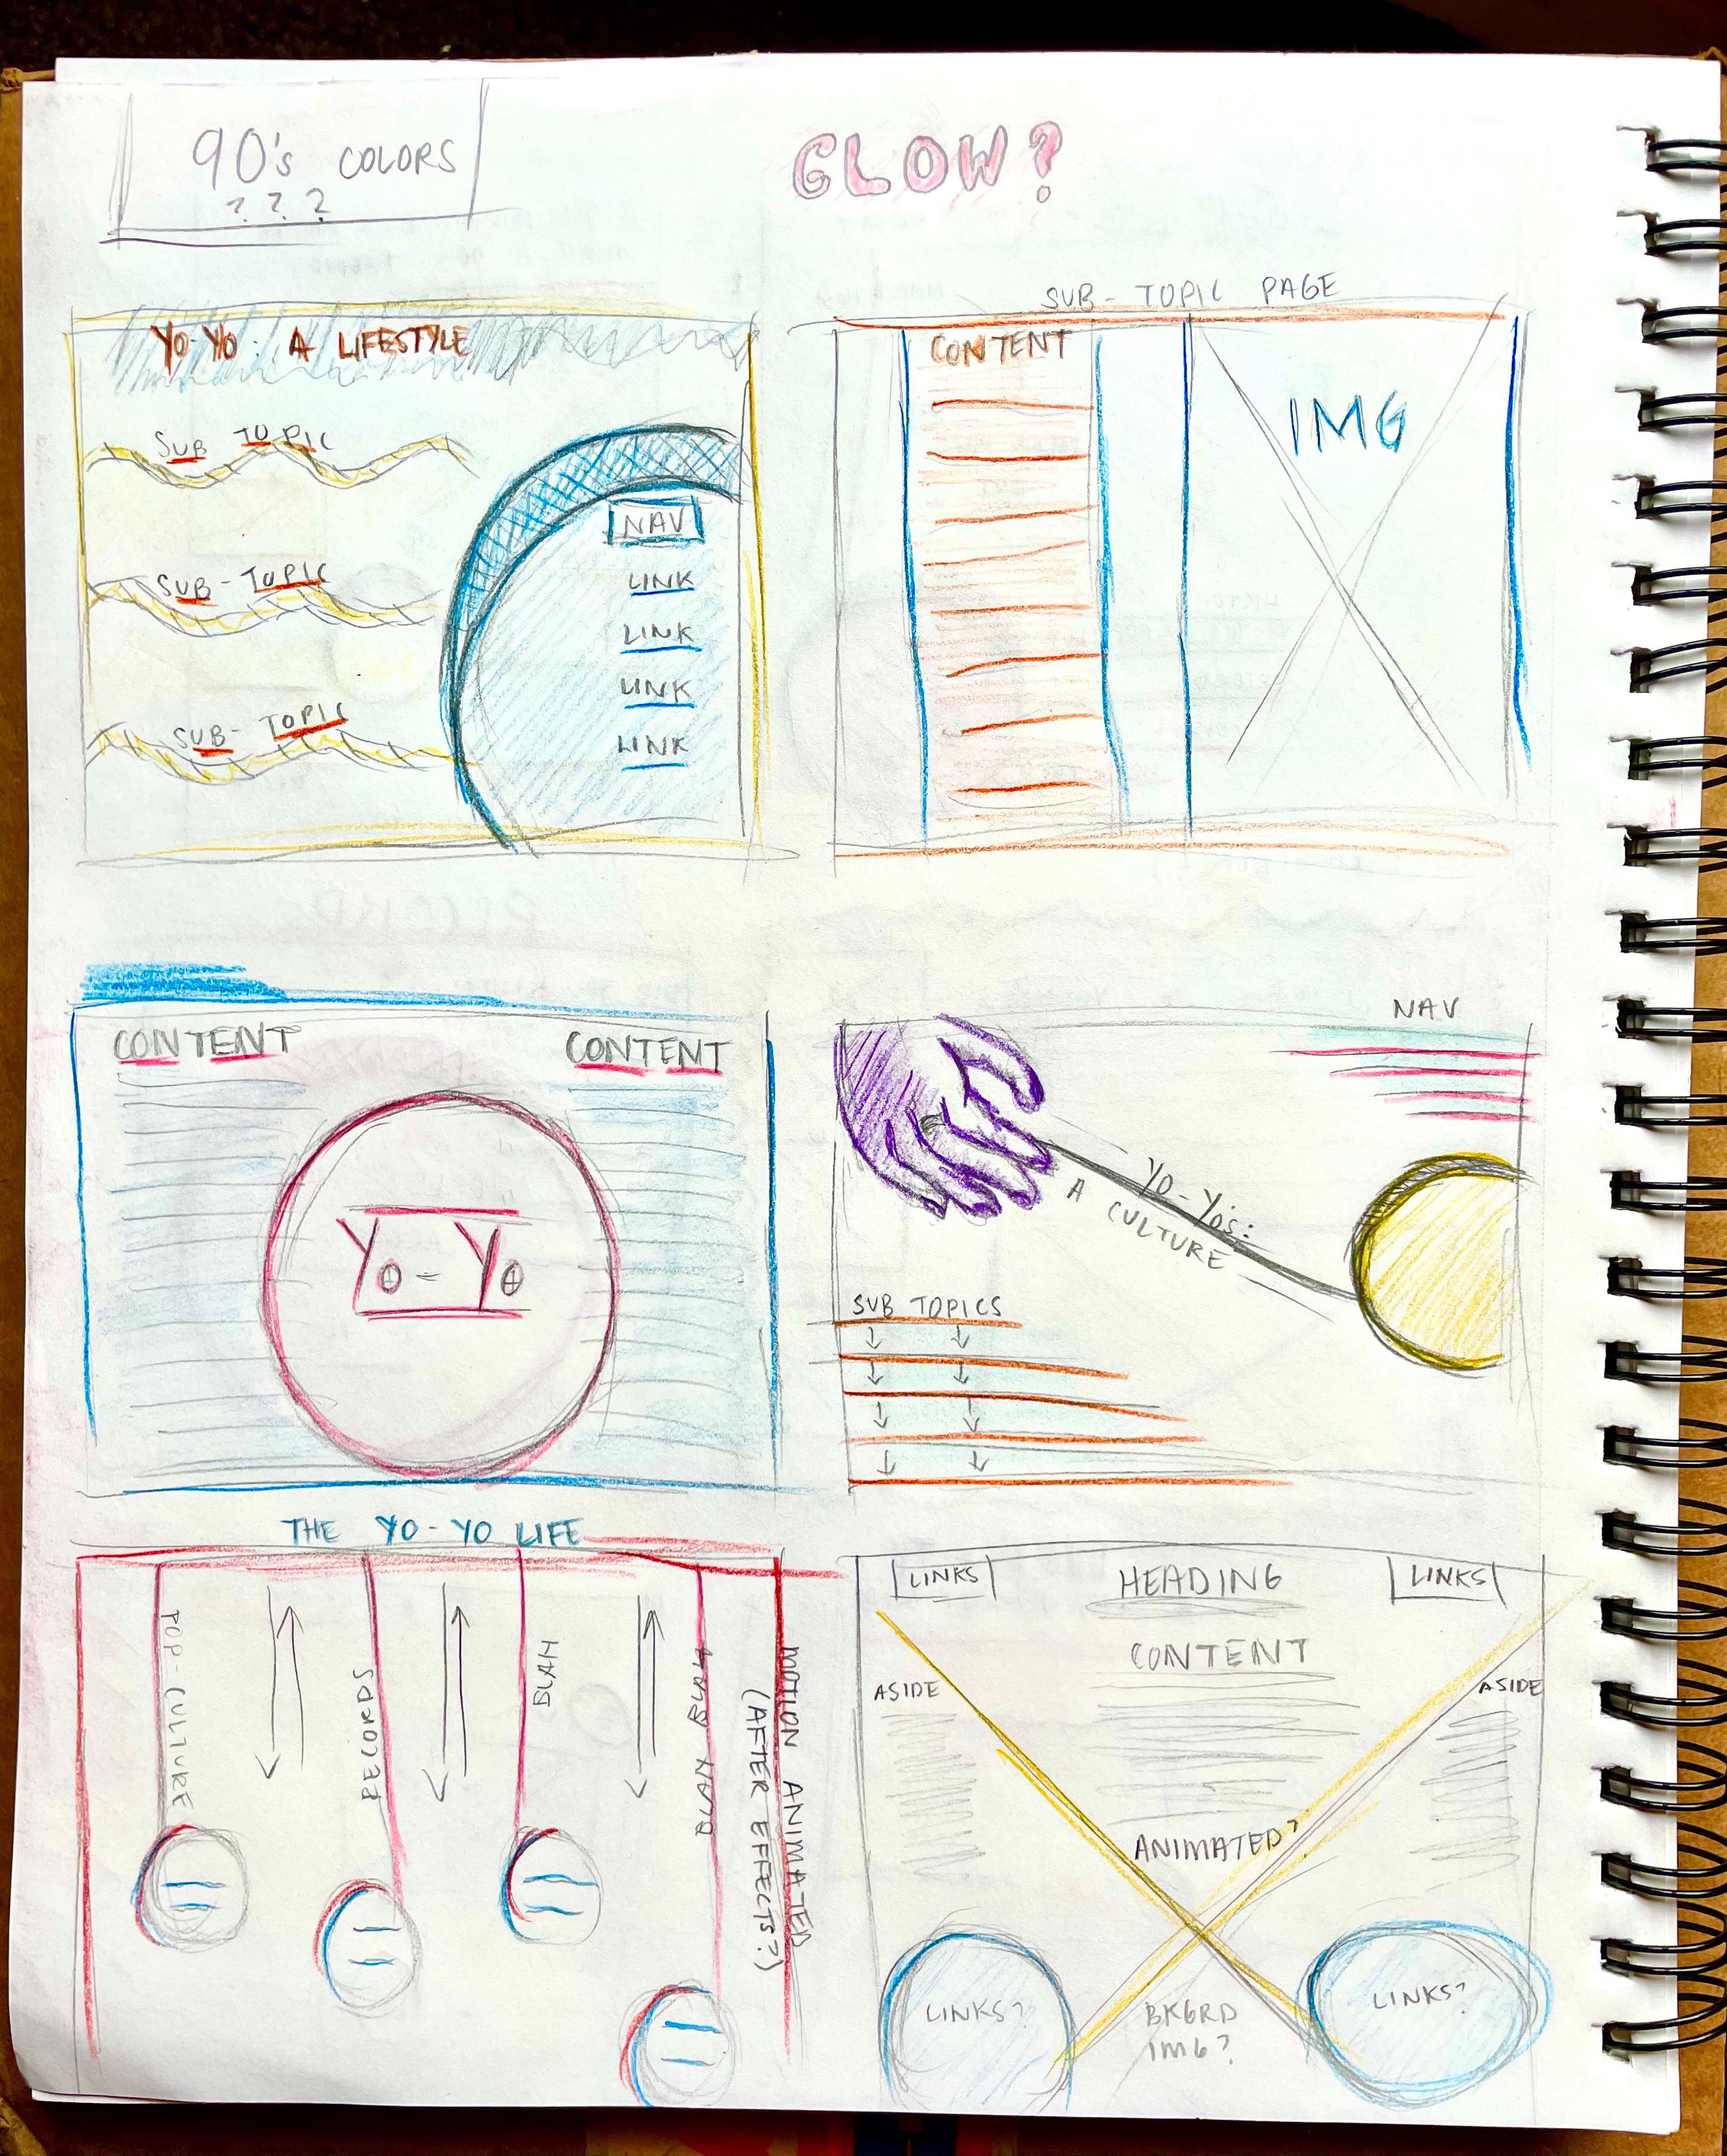 90's COLORS
? ? ?
GLOW?
YO-YO: A LIFESTYLE
SUB TOPIC
SUB-TOPIC
SUB-TOPIC
NAV
LINK
LINK
LINK
LINK
SUB-TOPIC PAGE
CONTENT
IMG
CONTENT
CONTENT
YO-YO
NAV
YO-YO'S:
A CULTURE
SUB TOPICS
THE YO-YO LIFE
POP-CULTURE
RECORDS
BLAH
BLAH BLAH
MOTION ANIMATED
(AFTER EFFECTS?)
LINKS
HEADING
LINKS
CONTENT
ASIDE
ASIDE
ANIMATED?
LINKS?
BKGRD
IMG?
LINKS?